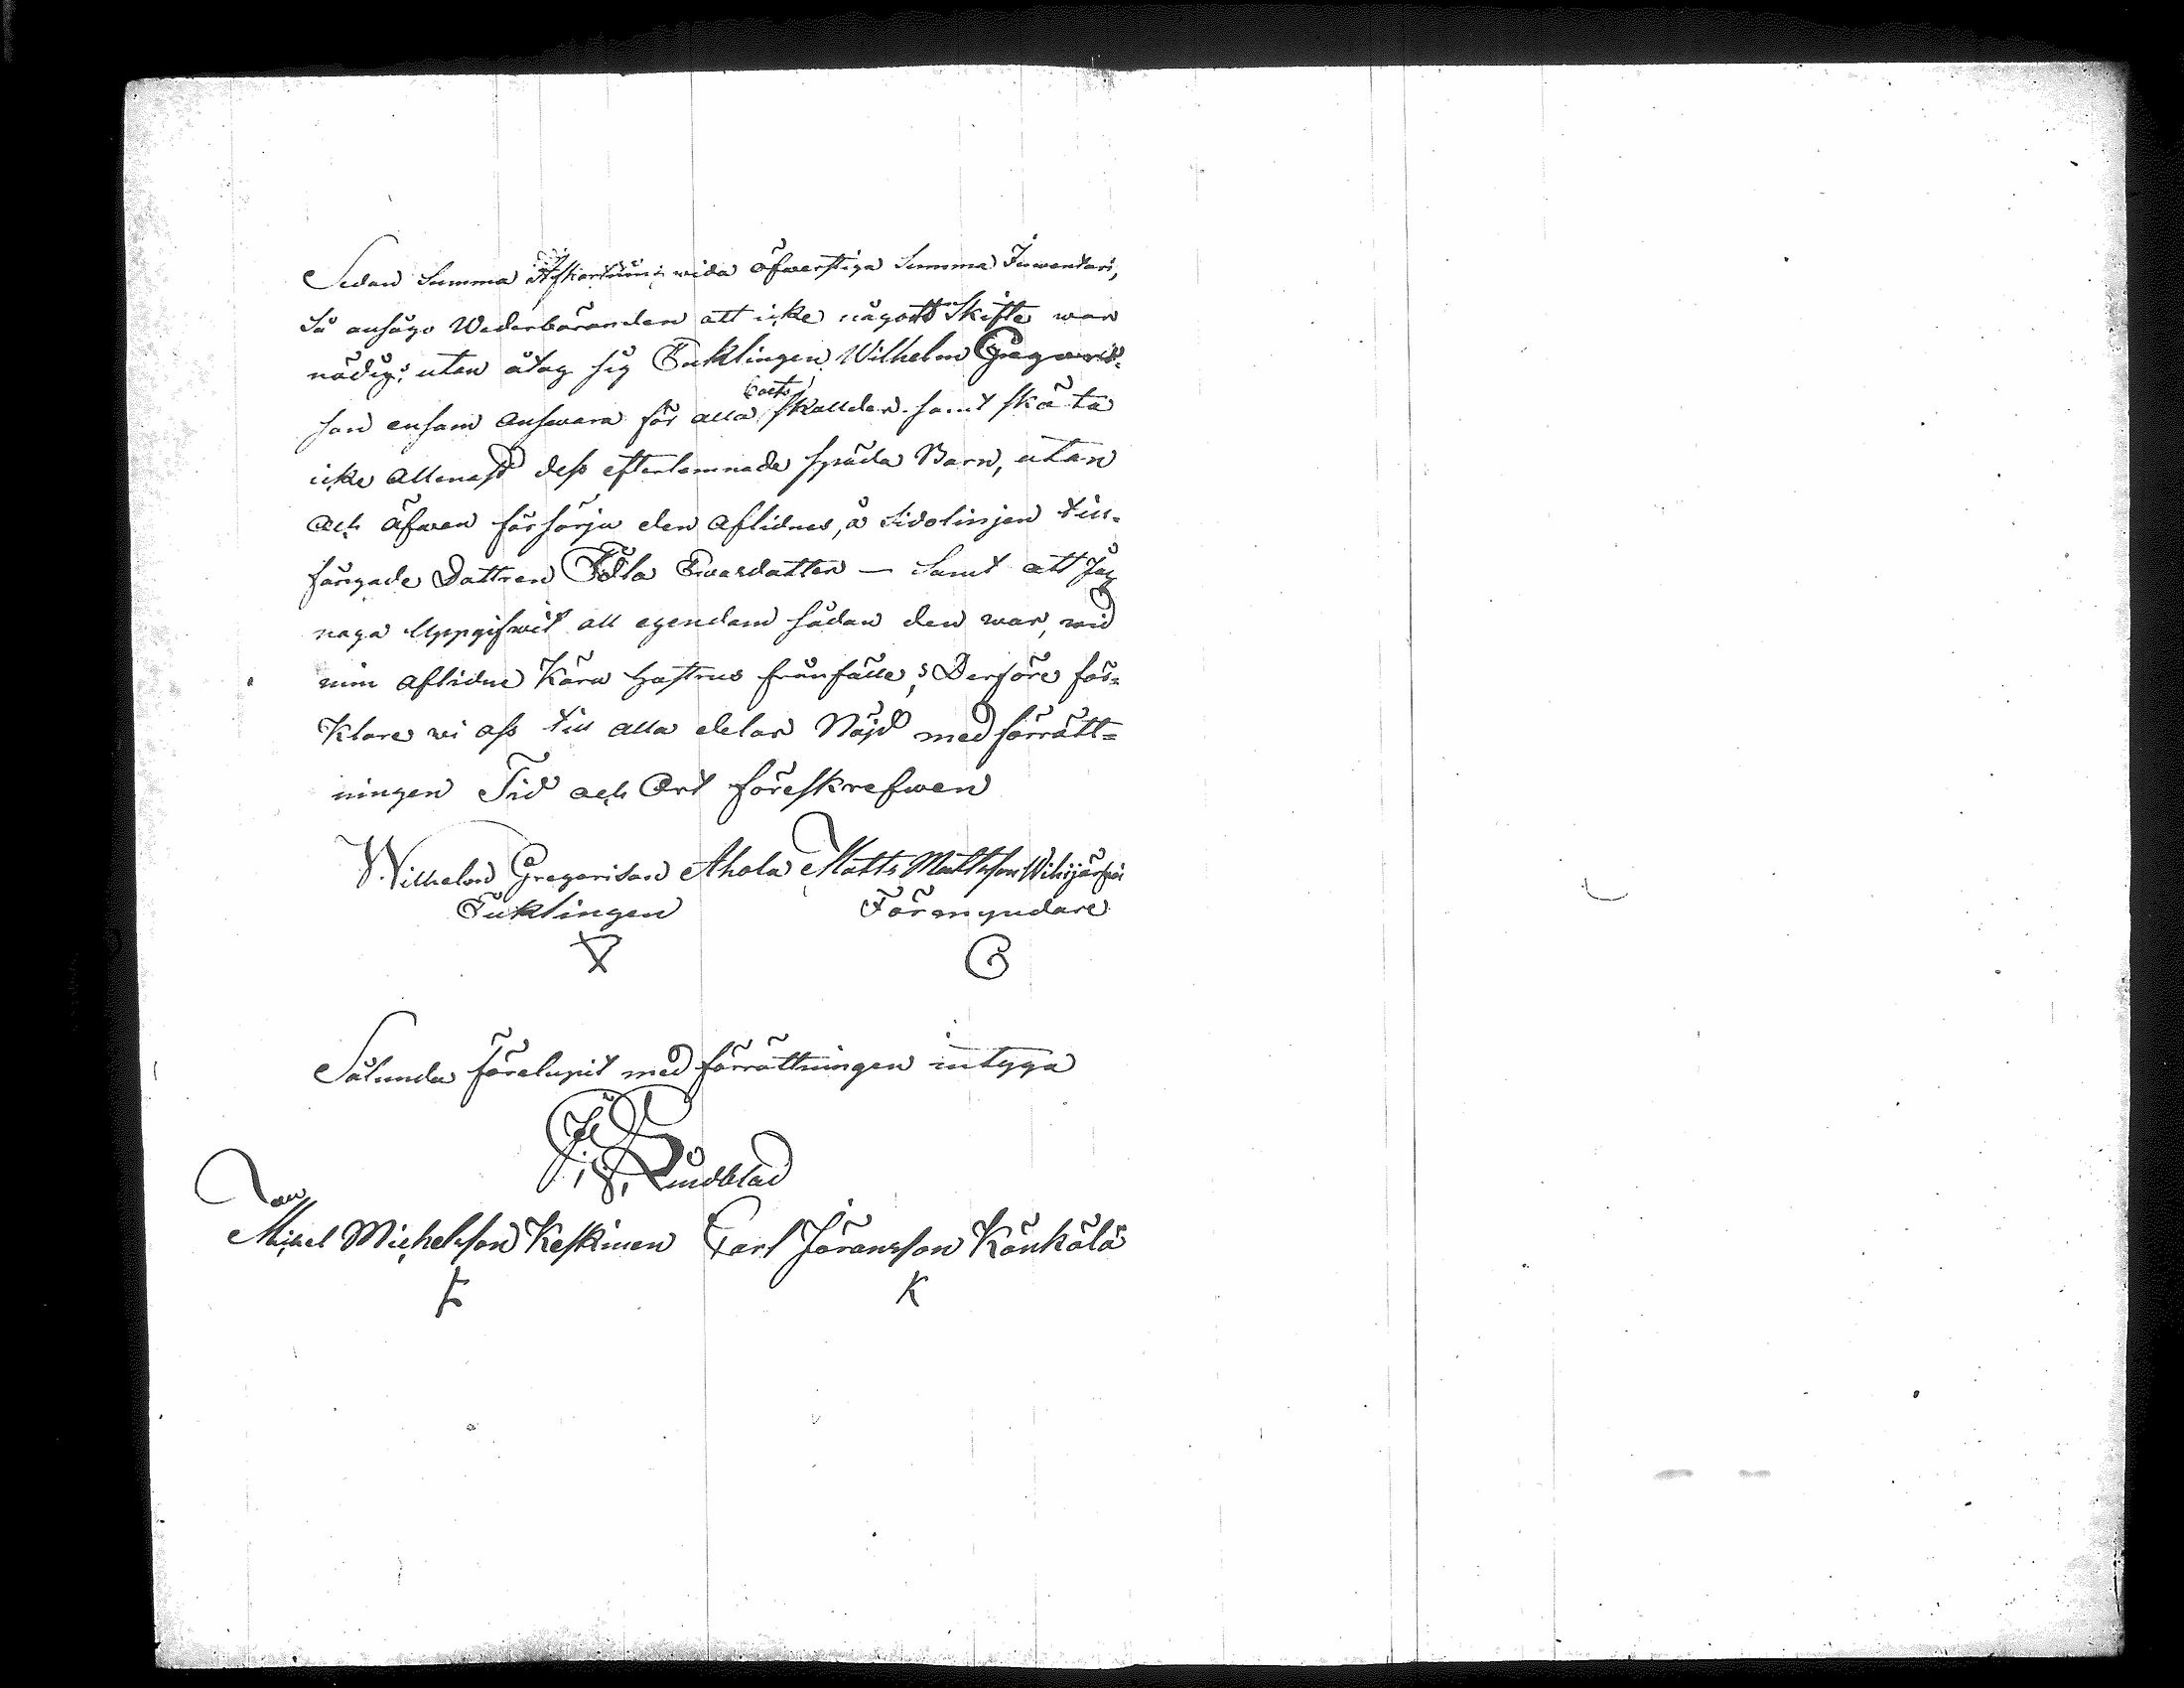 Sedan Summa Afkortning wida öfwerstiga Summa Inwentari,
Så ansågo Wederböranden att icke någott Skifte war
nödig; utan åtog sig Enklingen Wilhelm Gregoris-
son ensam answara för alla skullder samt sköta
icke allenast dess efterlemnade späda Barn, utan
och äfwen försörja den aflidnes, å Sidolinjen till-
fångade Dottren Ella Ewasdotter — Samt att Jag
noga Uppgifwit all egendom sådan den war, wid
min aflidne Kära hustrus frånfälle; Derföre för-
klare wi oss till alla delar Nöjd med förrätt-
ningen Tid och Ort föreskrefwen
Wilhelm Gregorisson Ahola Matts Mattsson
Enklingen Förmyndare
Sålunda förelupit med förrättningen intyga
Lindblad
Michel Michelsson Keskinen Carl Jöransson Könkölä
K